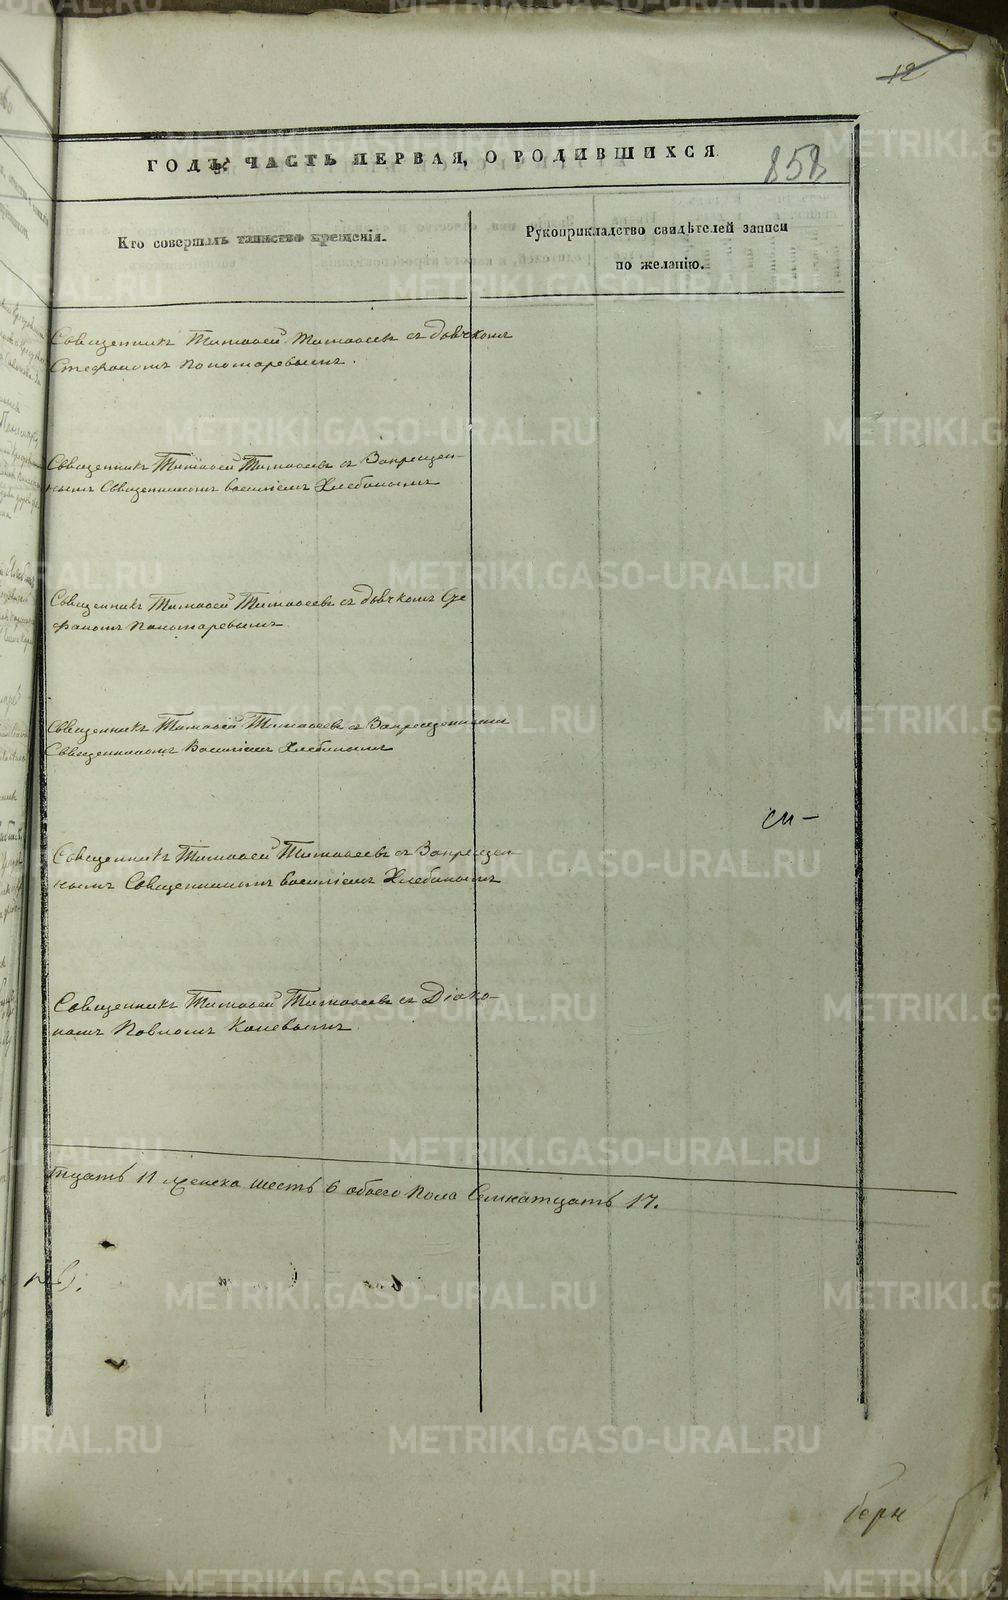 12
ГОДЪ. ЧАСТЬ ПЕРВАЯ, О РОДИВШИХСЯ.
858
Кто совершалъ таинство крещенія.
Рукоприкладство свидѣтелей записи
по желанію.
Священникъ Тимофей Тимофеевъ съ дьячкомъ
Стефаномъ Пономаревымъ.
Священникъ Тимофей Тимофеевъ съ Запрещен-
нымъ Священникомъ Василіемъ Хлебинымъ
Священникъ Тимофей Тимофеевъ съ дьячкомъ Сте
фаномъ Пономаревымъ.
Священникъ Тимофей Тимофеевъ съ Запрещеннымъ
Священникомъ Василіемъ Хлебинымъ
Священникъ Тимофей Тимофеевъ съ Запрещен-
нымъ Священникомъ Василіемъ Хлебинымъ
Священникъ Тимофей Тимофеевъ съ Діако-
номъ Павломъ Каневымъ.
тцать 11 женска шесть 6 обоего пола Семнатцать 17.
METRIKI.GASO-URAL.RU